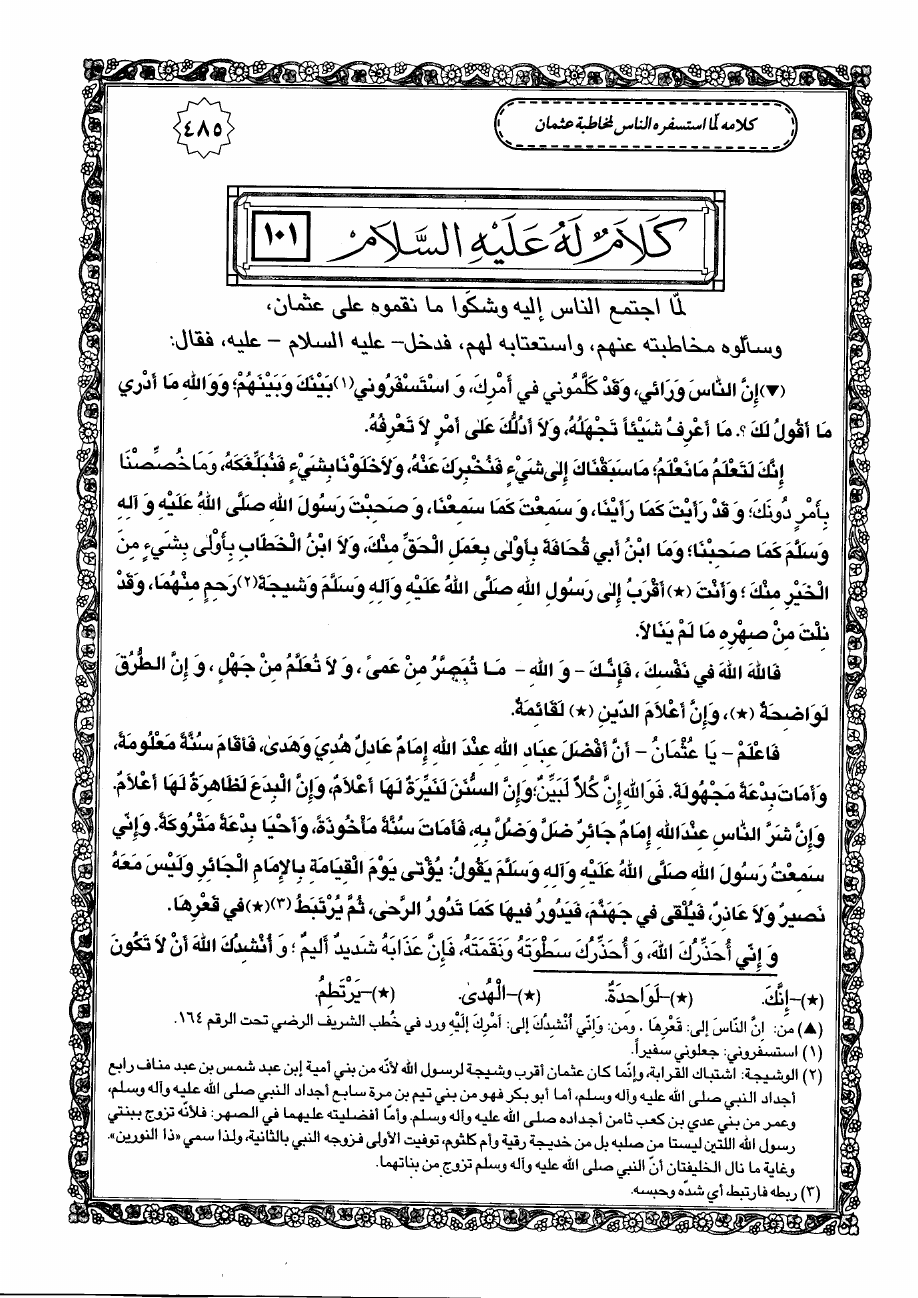 كلامه لمّا استسفره الناس لمخاطبة عثمان
٤٨٥
كَلَامٌ لَهُ عَلَيْهِ السَّلَامُ
١٠١
لمّا اجتمع الناس إليه وشكَوا ما نقموه على عثمان،
وسألوه مخاطبته عنهم، واستعتابه لهم، فدخل- عليه السلام - عليه، فقال:
(▼) إِنَّ النَّاسَ وَرَائي، وَقَدْ كَلَّمُوني في أَمْرِكَ، وَ اسْتَسْفَرُوني(١)بَيْنَكَ وَبَيْنَهُمْ؛ وَوَاللهِ مَا أَدْري
مَا أَقُولُ لَكَ ؟. مَا أَعْرِفُ شَيْئاً تَجْهَلُهُ، وَلاَ أَدُلُّكَ عَلى أَمْرٍ لاَ تَعْرِفُهُ.
إِنَّكَ لَتَعْلَمُ مَا نَعْلَمُ؛ مَا سَبَقْنَاكَ إِلى شَيْءٍ فَنُخْبِرَكَ عَنْهُ، وَلاَ خَلَوْنَا بِشَيْءٍ فَنُبَلِّغَكَهُ، وَمَا خُصِّصْنَا
بِأَمْرٍ دُونَكَ؛ وَ قَدْ رَأَيْتَ كَمَا رَأَيْنَا، وَ سَمِعْتَ كَمَا سَمِعْنَا، وَ صَحِبْتَ رَسُولَ اللهِ صَلَّى اللهُ عَلَيْهِ وَ آلِهِ
وَسَلَّمَ كَمَا صَحِبْنَا؛ وَمَا ابْنُ أَبي قُحَافَةَ بِأَوْلى بِعَمَلِ الْحَقِّ مِنْكَ، وَلاَ ابْنُ الْخَطَّابِ بِأَوْلى بِشَيْءٍ مِنَ
الْخَيْرِ مِنْكَ ؛ وَأَنْتَ (★) أَقْرَبُ إِلى رَسُولِ اللهِ صَلَّى اللهُ عَلَيْهِ وَآلِهِ وَسَلَّمَ وَشيجَةَ(٢)رَحِمٍ مِنْهُمَا، وَقَدْ
نِلْتَ مِنْ صِهْرِهِ مَا لَمْ يَنَالاَ.
فَاللهَ اللهَ في نَفْسِكَ ، فَإِنَّكَ - وَ اللهِ - مَا تُبَصَّرُ مِنْ عَمىً ، وَ لاَ تُعَلَّمُ مِنْ جَهْلٍ ، وَ إِنَّ الطُّرُقَ
لَوَاضِحَةٌ (★)، وَإِنَّ أَعْلاَمَ الدّينِ (★) لَقَائِمَةٌ.
فَاعْلَمْ - يَا عُثْمَانُ - أَنَّ أَفْضَلَ عِبَادِ اللهِ عِنْدَ اللهِ إِمَامٌ عَادِلٌ هُدِيَ وَهَدى، فَأَقَامَ سُنَّةً مَعْلُومَةً،
وَأَمَاتَ بِدْعَةً مَجْهُولَةً. فَوَاللهِ إِنَّ كُلاًّ لَبَيِّنٌ؛ وَإِنَّ السُّنَنَ لَنَيِّرَةٌ لَهَا أَعْلاَمٌ، وَإِنَّ الْبِدَعَ لَظَاهِرَةٌ لَهَا أَعْلاَمٌ.
وَإِنَّ شَرَّ النَّاسِ عِنْدَ اللهِ إِمَامٌ جَائِرٌ ضَلَّ وَضُلَّ بِهِ، فَأَمَاتَ سُنَّةً مَأْخُوذَةً، وَأَحْيَا بِدْعَةً مَتْرُوكَةً. وَإِنّي
سَمِعْتُ رَسُولَ اللهِ صَلَّى اللهُ عَلَيْهِ وَآلِهِ وَسَلَّمَ يَقُولُ: يُؤْتى يَوْمَ الْقِيَامَةِ بِالإِمَامِ الْجَائِرِ وَلَيْسَ مَعَهُ
نَصيرٌ وَلاَ عَاذِرٌ، فَيُلْقى في جَهَنَّمَ، فَيَدُورُ فيهَا كَمَا تَدُورُ الرَّحى، ثُمَّ يُرْتَبَطُ (٣)(★)في قَعْرِهَا.
وَ إِنّي أُحَذِّرُكَ اللهَ، وَ أُحَذِّرُكَ سَطْوَتَهُ وَنَقِمَتَهُ، فَإِنَّ عَذَابَهُ شَديدٌ أَليمٌ ؛ وَ أُنْشِدُكَ اللهَ أَنْ لاَ تَكُونَ
(★)-إِنَّكَ. (★)-لَوَاحِدَةٌ. (★)-الْهُدى. (★)-يَرْتَطِمُ.
(▲) من: إنَّ النَّاسَ إلى: قَعْرِهَا . ومن: وَإنّي أُنْشِدُكَ إلى: أَمْرِكَ إلَيْهِ ورد في خُطب الشريف الرضي تحت الرقم ١٦٤.
(١) استسفروني: جعلوني سفيراً.
(٢) الوشيجة: اشتباك القرابة، وإنّما كان عثمان أقرب وشيجة لرسول الله لأنّه من بني أمية إبن عبد شمس بن عبد مناف رابع
أجداد النبي صلى الله عليه وآله وسلم، أما أبو بكر فهو من بني تيم بن مرة سابع أجداد النبي صلى الله عليه وآله وسلم،
وعمر من بني عدي بن كعب ثامن أجداده صلى الله عليه وآله وسلم. وأمّا أفضليته عليهما في الصهر: فلأنّه تزوج ببنتي
رسول الله اللتين ليستا من صلبه بل من خديجة رقية وأم كلثوم، توفيت الأولى فزوجه النبي بالثانية، ولذا سمي «ذا النورين».
وغاية ما نال الخليفتان أنّ النبي صلى الله عليه وآله وسلم تزوج من بناتهما.
(٣) ربطه فارتبط، أي شدّه وحبسه.